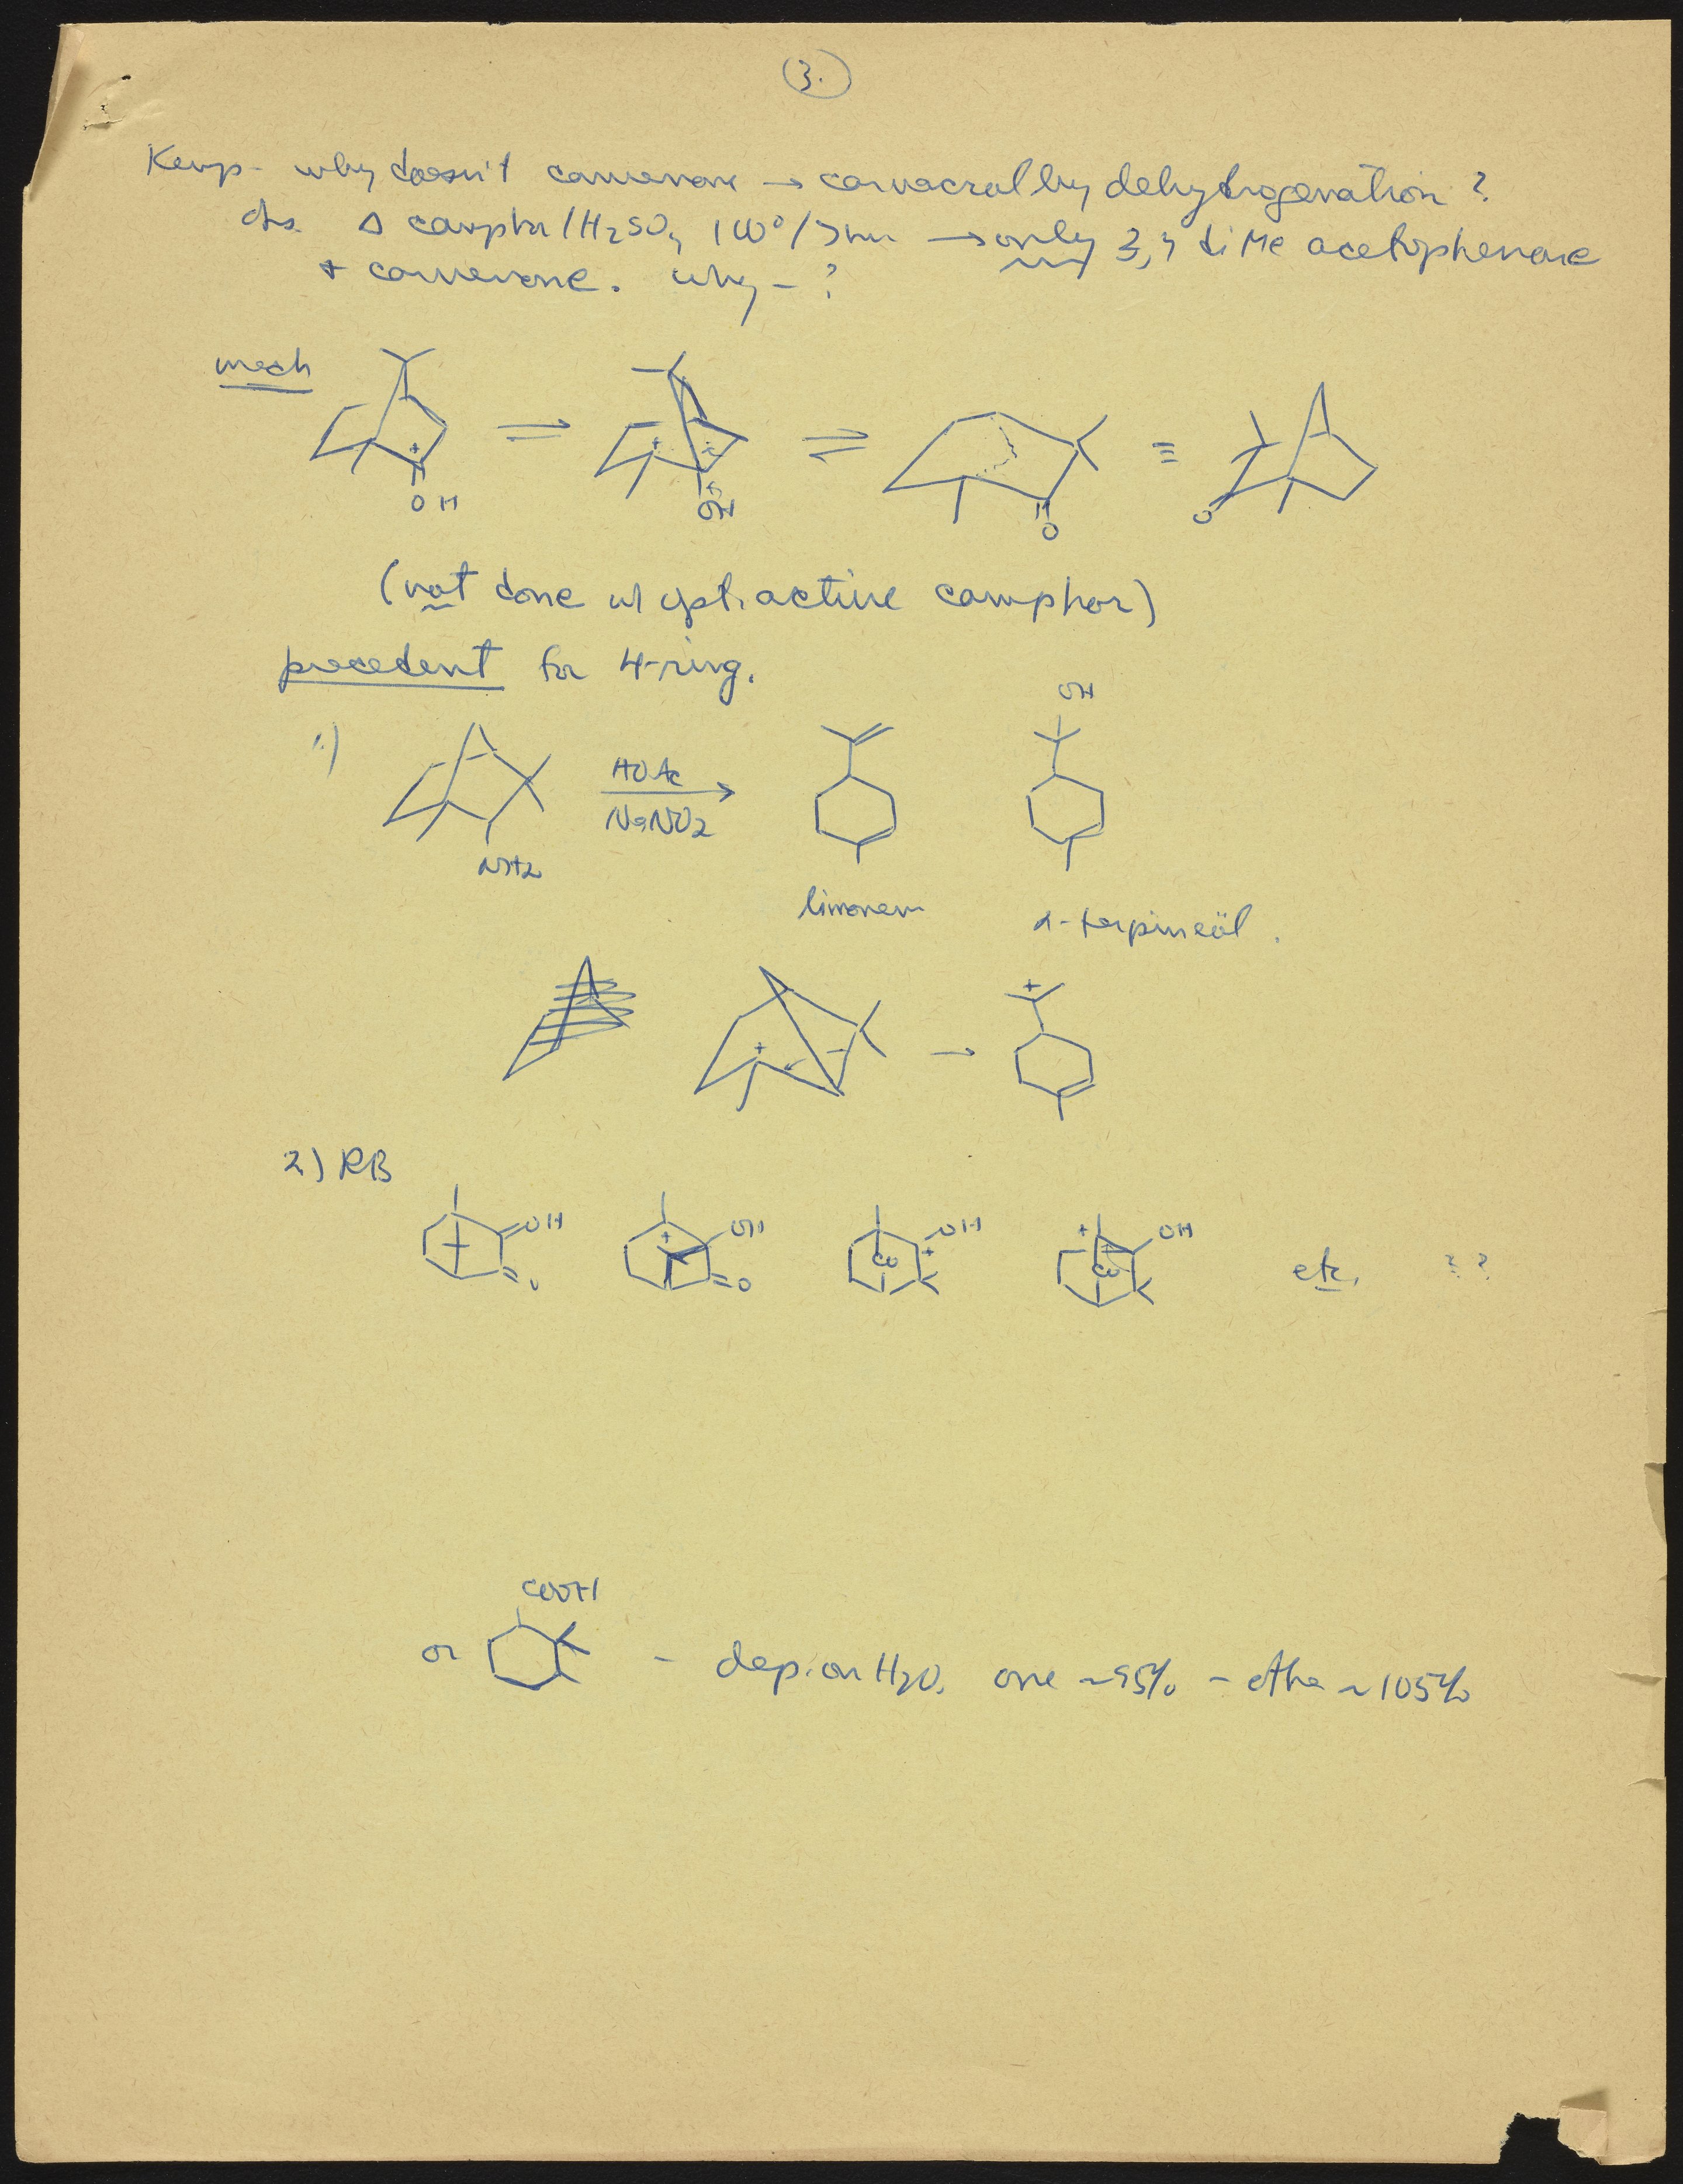 3.
Kemp - why doesn't carvenone → carvacrol by dehydrogenation ?
Δ camphor / H2SO4 100° / → only 3,4 diMe acetophenone
+ carvenone. why - ?
mech
+
OH
+
OH
O
≡
O
(not done w/ opt. active camphor)
precedent for 4-ring.
1)
NH2
HOAc
NaNO2
OH
limonene
α-terpineol.
+
→
+
2) RB
OH
O
+
OH
O
CO
OH
+
+
CO
OH
etc.
? ?
COOH
or
- dep. on H2O. one ~95% - other ~105%